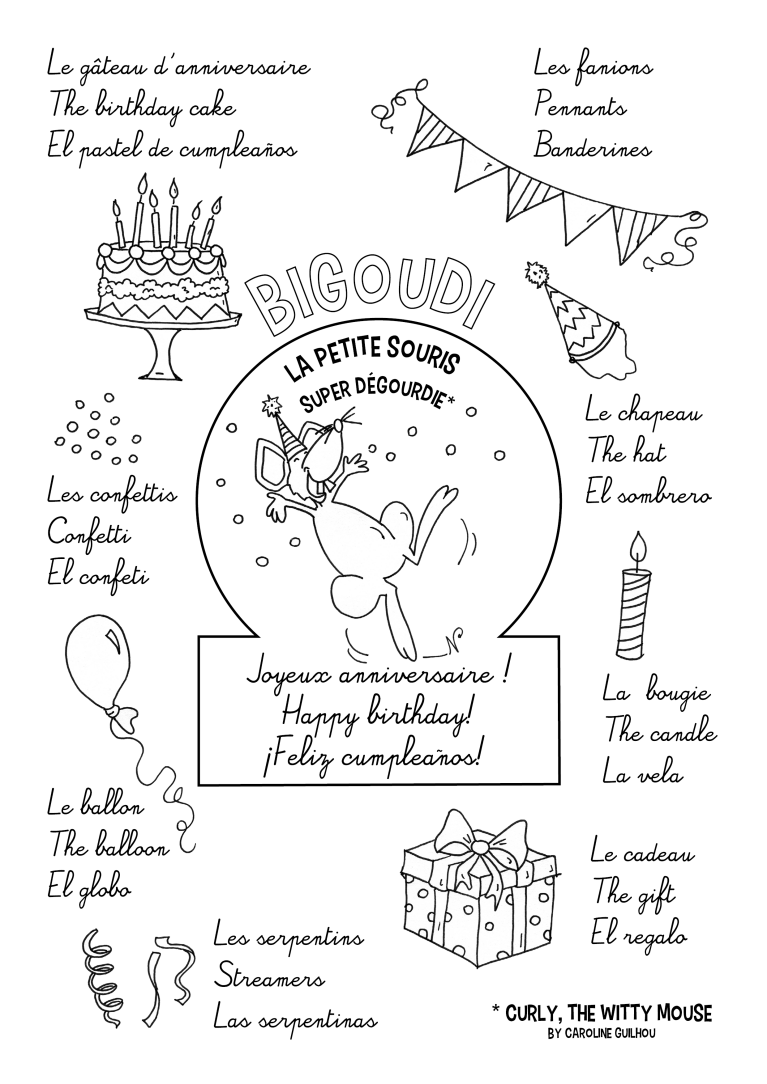 Le gâteau d'anniversaire
The birthday cake
El pastel de cumpleaños
Les fanions
Pennants
Banderines
BIGOUDI
LA PETITE SOURIS
SUPER DÉGOURDIE*
Le chapeau
The hat
El sombrero
Les confettis
Confetti
El confeti
Joyeux anniversaire !
Happy birthday!
¡Feliz cumpleaños!
La bougie
The candle
La vela
Le ballon
The balloon
El globo
Le cadeau
The gift
El regalo
Les serpentins
Streamers
Las serpentinas
* CURLY, THE WITTY MOUSE
BY CAROLINE GUILHOU